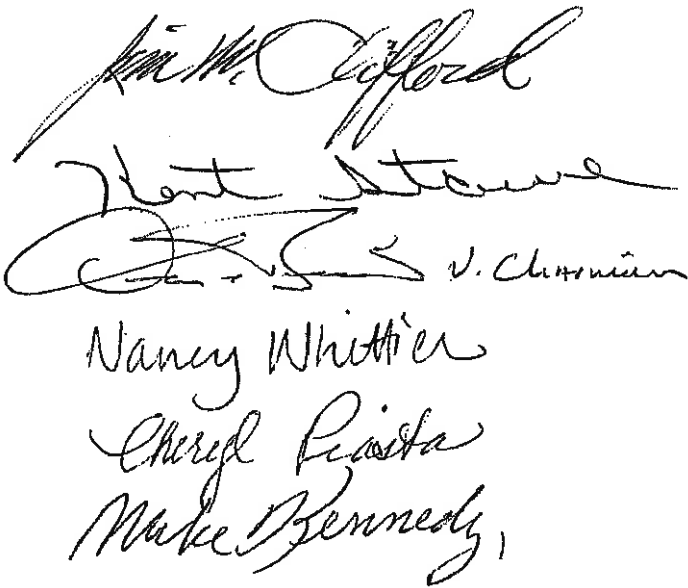 Jim M. Clifford
Kent Stowe
V. Chairman
Nancy Whittier
Cheryl Piasta
Mike Kennedy,